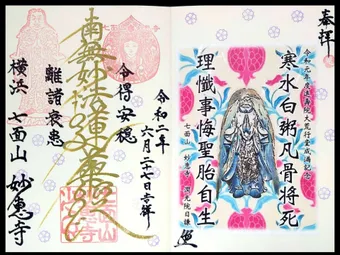 奉拝
寒水白粥凡骨将死
理懺事悔聖胎自生
七面山 妙恵寺
南無妙法蓮華経
令得安穏
離諸衰患
令和二年
六月二十七日吉祥
横浜 七面山 妙恵寺